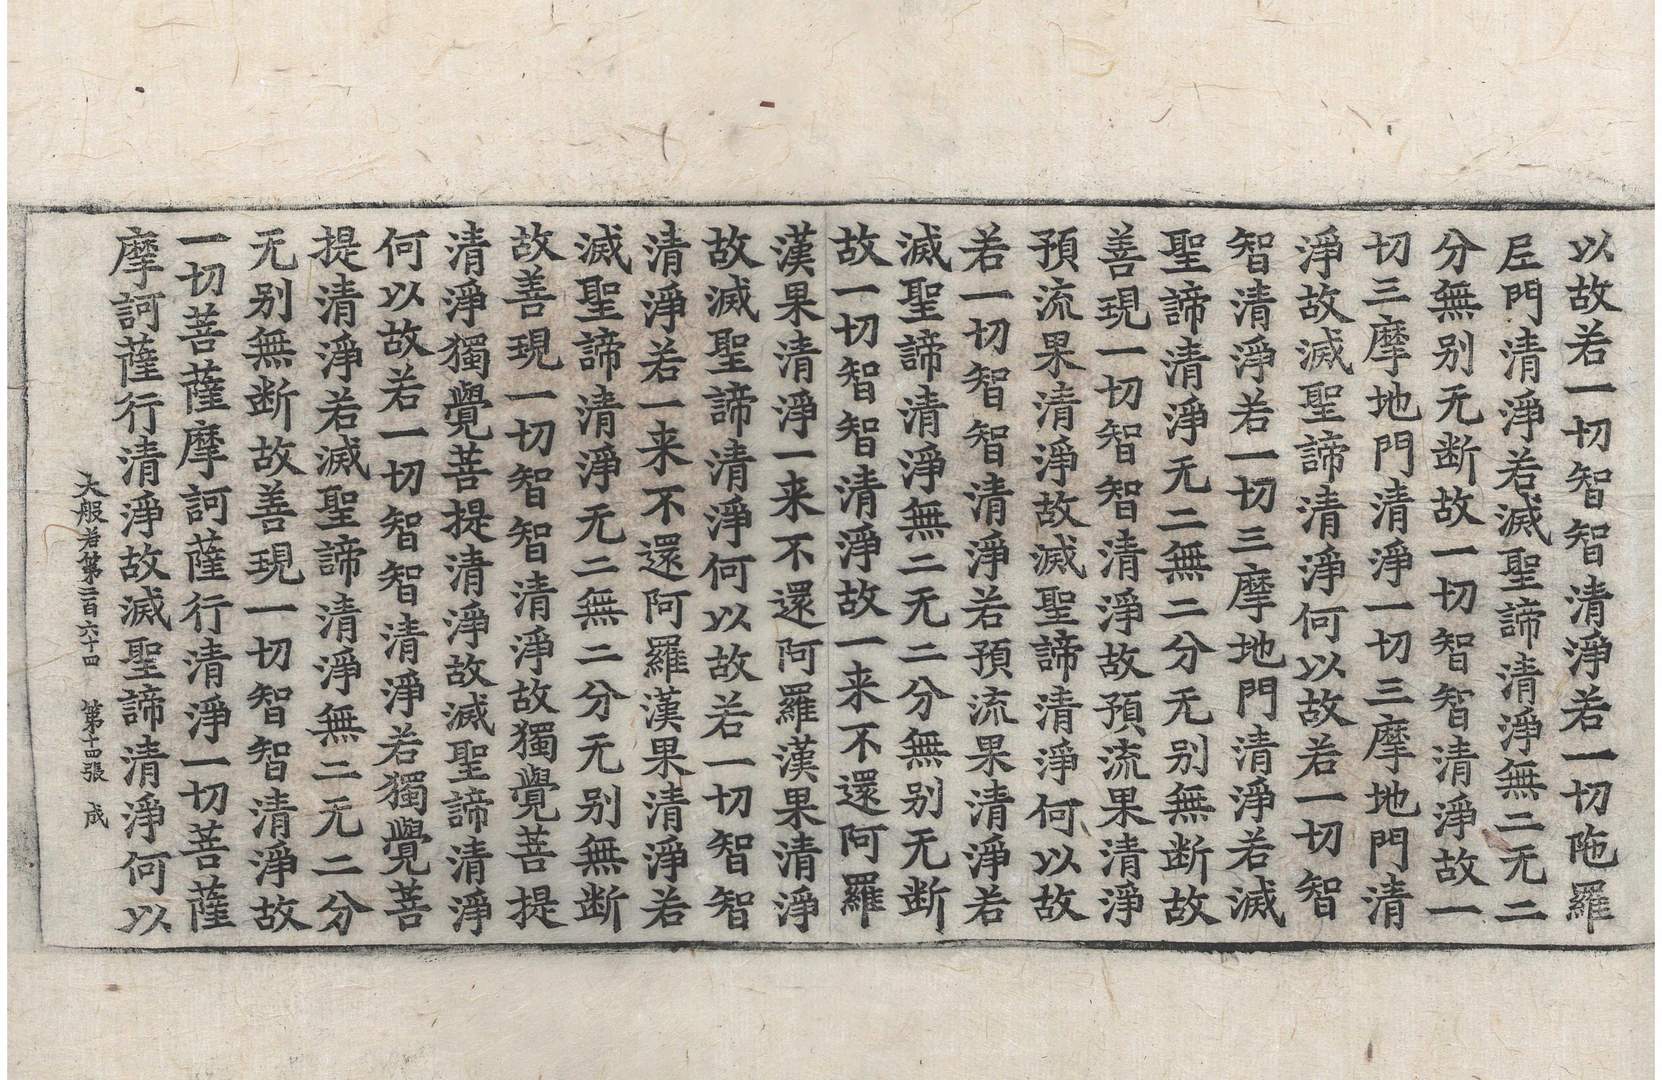 以故若一切智智清淨若一切陁羅
𡰱門清淨若滅聖諦清淨無二无二
分無別无断故一切智智清淨故一
切三摩地門清淨一切三摩地門清
淨故滅聖諦清淨何以故若一切智
智清淨若一切三摩地門清淨若滅
聖諦清淨无二無二分无別無断故
善現一切智智清淨故預流果清淨
預流果清淨故滅聖諦清淨何以故
若一切智智清淨若預流果清淨若
滅聖諦清淨無二无二分無別无断
故一切智智清淨故一来不還阿羅
漢果清淨一来不還阿羅漢果清淨
故滅聖諦清淨何以故若一切智智
清淨若一来不還阿羅漢果清淨若
滅聖諦清淨无二無二分无別無断
故善現一切智智清淨故獨覺菩提
清淨獨覺菩提清淨故滅聖諦清淨
何以故若一切智智清淨若獨覺菩
提清淨若滅聖諦清淨無二无二分
无別無断故善現一切智智清淨故
一切菩薩摩訶薩行清淨一切菩薩
摩訶薩行清淨故滅聖諦清淨何以
大般若第二百六十四 第十四張 成